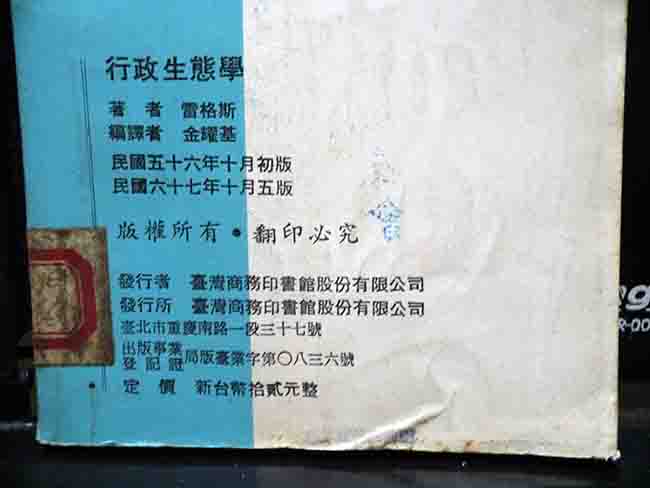 行政生態學
著 者 雷格斯
編譯者 金耀基
民國五十六年十月初版
民國六十七年十月五版
版權所有・翻印必究
發行者 臺灣商務印書館股份有限公司
發行所 臺灣商務印書館股份有限公司
臺北市重慶南路一段三十七號
出版事業
登記證 局版臺業字第〇八三六號
定 價 新台幣拾貳元整